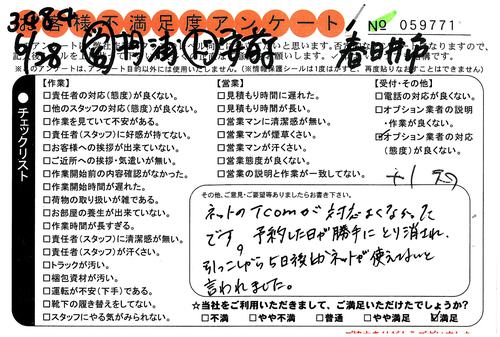 お客様不満足度アンケート
№ 059771
6/28
春日井市
チェックリスト
【作業】
□責任者の対応(態度)が良くない。
□他のスタッフの対応(態度)が良くない。
□作業を見ていて不安がある。
□責任者(スタッフ)に好感が持てない。
□お客様への挨拶が出来ていない。
□ご近所への挨拶・気遣いが無い。
□作業開始前の内容確認がなかった。
□作業開始時間が遅れた。
□荷物の取り扱いが雑である。
□お部屋の養生が出来ていない。
□作業時間が長すぎる。
□責任者(スタッフ)に清潔感が無い。
□責任者(スタッフ)が汗くさい。
□トラックが汚い。
□梱包資材が汚い。
□運転が不安(下手)である。
□靴下の履き替えをしてない。
□スタッフにやる気がみられない。
【営業】
□見積もり時間に遅れた。
□見積もり時間が長い。
□営業マンに清潔感が無い。
□営業マンが煙草くさい。
□営業マンが汗くさい。
□営業態度が良くない。
□営業の説明と作業が一致してない。
【受付・その他】
□電話の対応が良くない。
□オプション業者の説明
・作業が良くない。
☑オプション業者の対応
(態度)が良くない。
その他、ご意見・ご要望等ありましたらお書き下さい。
ネットのTcomが対応よくなかった
です。予約した日が勝手にとり消され、
引っこしから5日後しかネットが使えないと
言われました。
☆当社をご利用いただきまして、ご満足いただけたでしょうか?
□不満 □やや不満 □普通 □やや満足 ☑満足